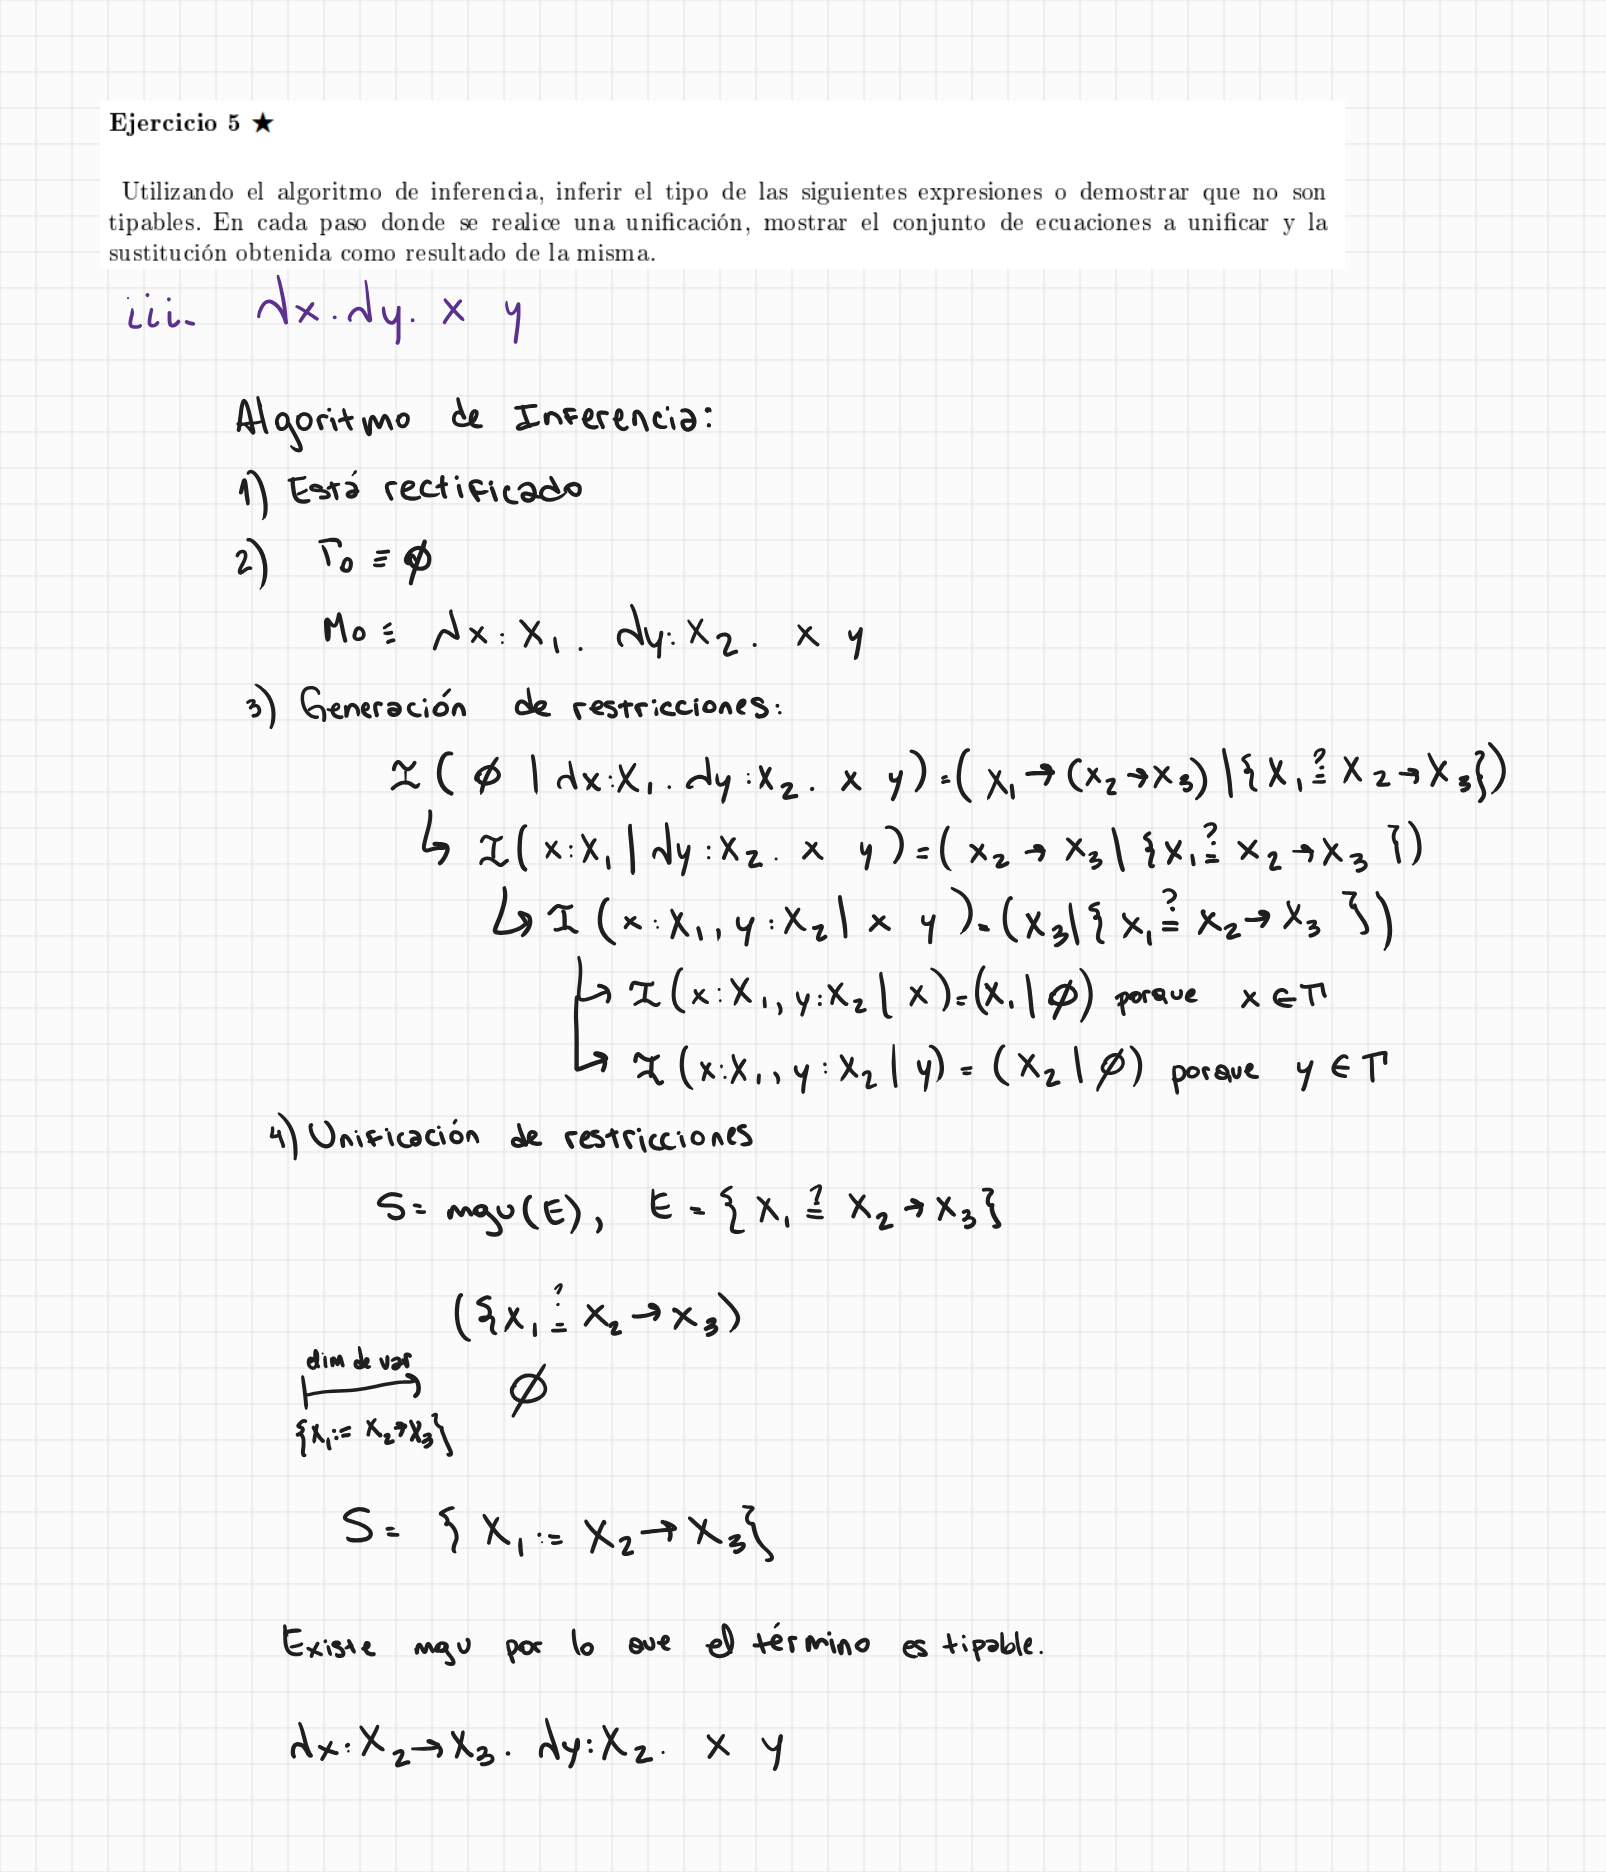 Ejercicio 5 ★
Utilizando el algoritmo de inferencia, inferir el tipo de las siguientes expresiones o demostrar que no son
tipables. En cada paso donde se realice una unificación, mostrar el conjunto de ecuaciones a unificar y la
sustitución obtenida como resultado de la misma.
iii. λx.λy. x y
Algoritmo de Inferencia:
1) Está rectificado
2) Γ₀ ≡ ∅
M₀ ≡ λx:X₁. λy:X₂. x y
3) Generación de restricciones:
I(∅ | λx:X₁. λy:X₂. x y) = (X₁ → (X₂ → X₃) | {X₁ ≟ X₂ → X₃})
↳ I(x:X₁ | λy:X₂. x y) = (X₂ → X₃ | {X₁ ≟ X₂ → X₃})
↳ I(x:X₁, y:X₂ | x y) = (X₃ | {X₁ ≟ X₂ → X₃})
↳ I(x:X₁, y:X₂ | x) = (X₁ | ∅) porque x ∈ Γ
↳ I(x:X₁, y:X₂ | y) = (X₂ | ∅) porque y ∈ Γ
4) Unificación de restricciones
S = mgu(E), E = {X₁ ≟ X₂ → X₃}
({X₁ ≟ X₂ → X₃)
elim de var
↦ ∅
{X₁ := X₂ → X₃}
S = {X₁ := X₂ → X₃}
Existe mgu por lo que el término es tipable.
λx:X₂ → X₃. λy:X₂. x y